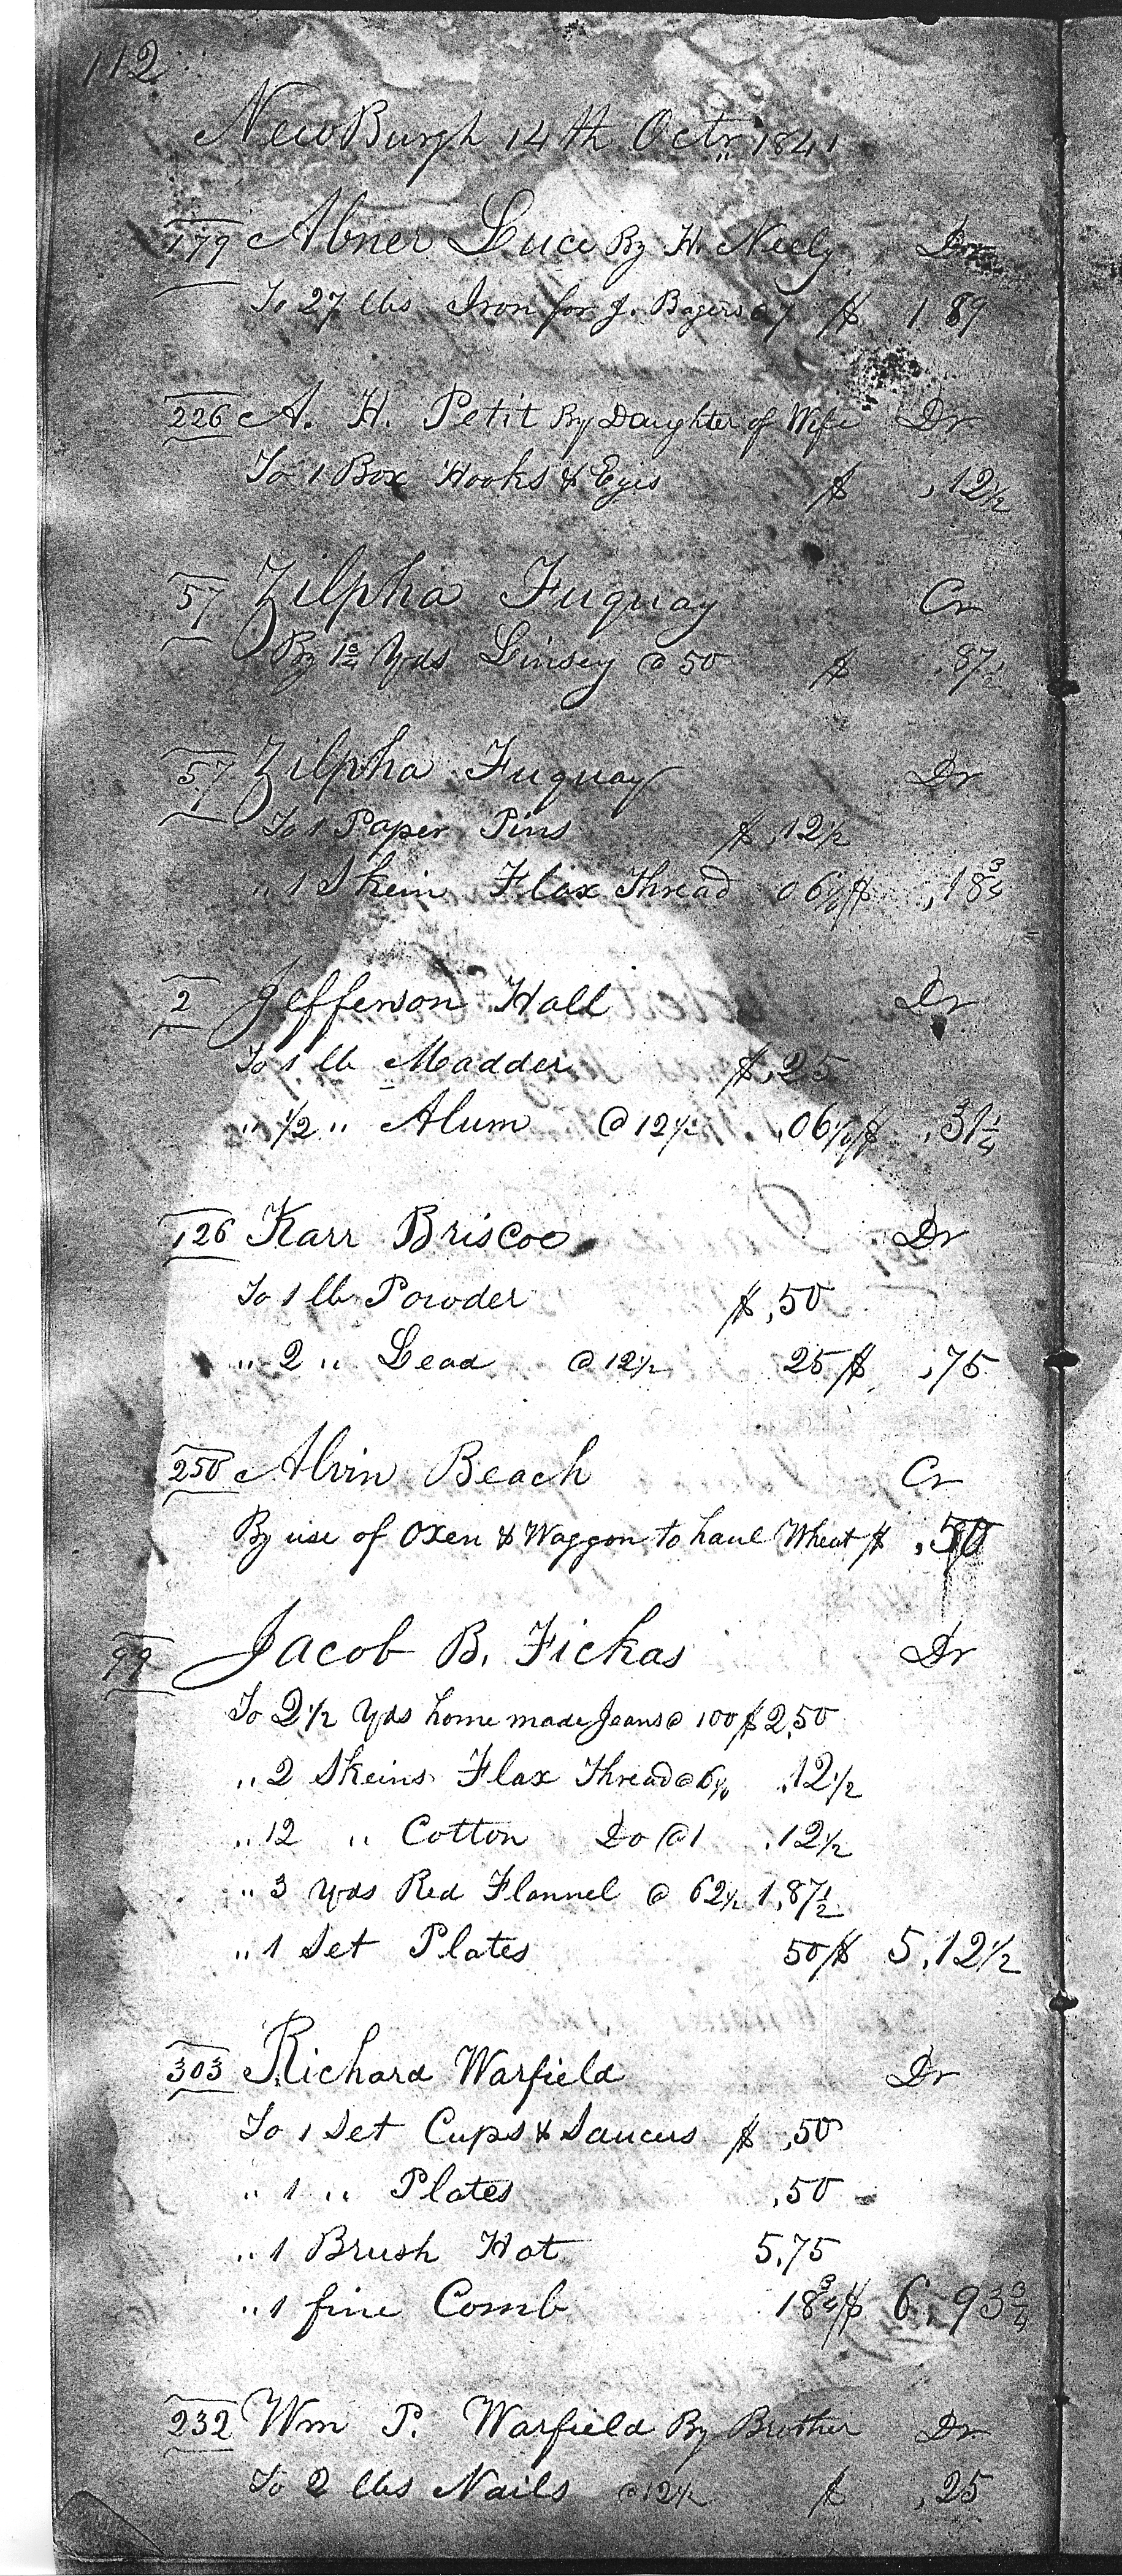 112
NewBurgh 14th Octr 1841
179 Abner Luce By H. Neely Dr
To 27 lbs Iron for J. Rogers @ 7 $ 1 89
226 A. H. Petit By Daughter of Wife Dr
To 1 Box Hooks & Eyes $ ,12 1/2
57 Zilpha Fuquay Cr
By 1 3/4 Yds Linsey @ 50 $ ,87 1/2
57 Zilpha Fuquay Dr
To 1 Paper Pins $ ,12 1/2
" 1 Skein Flax Thread 06 1/4 $ ,18 3/4
2 Jefferson Hall Dr
To 1 lb Madder $ ,25
" 1/2 " Alum @ 12 1/2 ,06 1/4 $ ,31 1/4
126 Karr Briscoe Dr
To 1 lb Powder $ ,50
" 2 " Lead @ 12 1/2 25 $ ,75
250 Alvin Beach Cr
By use of Oxen & Waggon to haul Wheat $ ,50
99 Jacob B. Fickas Dr
To 2 1/2 Yds home made Jeans @ 100 $ 2,50
" 2 Skeins Flax Thread @ 6 1/4 ,12 1/2
" 12 " Cotton Do @ 1 ,12 1/2
" 3 Yds Red Flannel @ 62 1/2 1,87 1/2
" 1 Set Plates 50 $ 5,12 1/2
303 Richard Warfield Dr
To 1 Set Cups & Saucers $ ,50
" 1 " Plates ,50
" 1 Brush Hat 5,75
" 1 fine Comb 18 3/4 $ 6,93 3/4
232 Wm P. Warfield By Brother Dr
To 2 lbs Nails @ 12 1/2 $ ,25